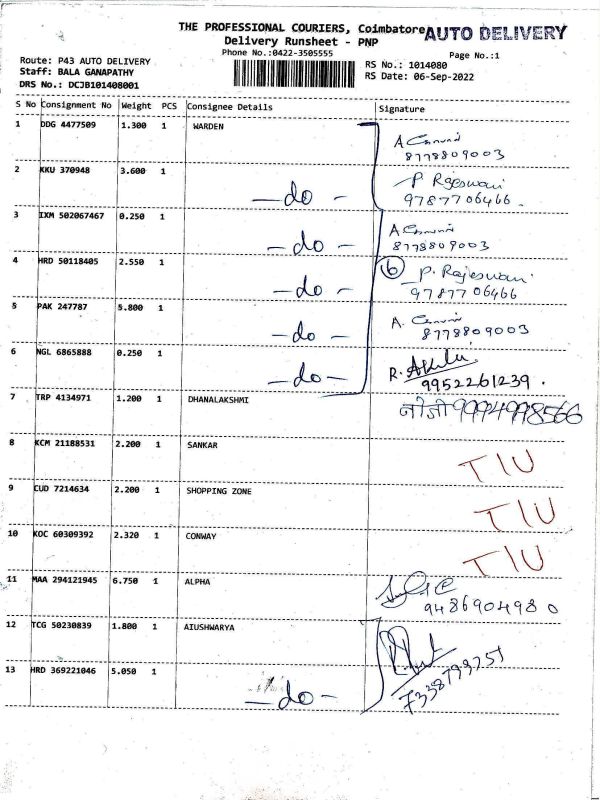 THE PROFESSIONAL COURIERS, Coimbatore
AUTO DELIVERY
Delivery Runsheet - PNP
Phone No.:0422-3505555
Page No.:1
Route: P43 AUTO DELIVERY
RS No.: 1014080
Staff: BALA GANAPATHY
RS Date: 06-Sep-2022
DRS No.: DCJB101408001
S No Consignment No Weight PCS Consignee Details Signature
1 DDG 4477509 1.300 1 WARDEN A
8778809003
2 KKU 370948 3.600 1 P. Rajeswari
-do- 9787706466.
3 IXM 502067467 0.250 1 A
-do- 8778809003
4 HRD 50118405 2.550 1 6 P. Rajeswari
-do- 9787706466
5 PAK 247787 5.800 1 A.
-do- 8778809003
6 NGL 6865888 0.250 1 R. Akila
-do- 9952261239.
7 TRP 4134971 1.200 1 DHANALAKSHMI 9994998566
8 KCM 21188531 2.200 1 SANKAR TIU
9 CUD 7214634 2.200 1 SHOPPING ZONE TIU
10 KOC 60309392 2.320 1 CONWAY TIU
11 MAA 294121945 6.750 1 ALPHA
9486904980
12 TCG 50230839 1.800 1 AIUSHWARYA
13 HRD 369221046 5.050 1
-do-